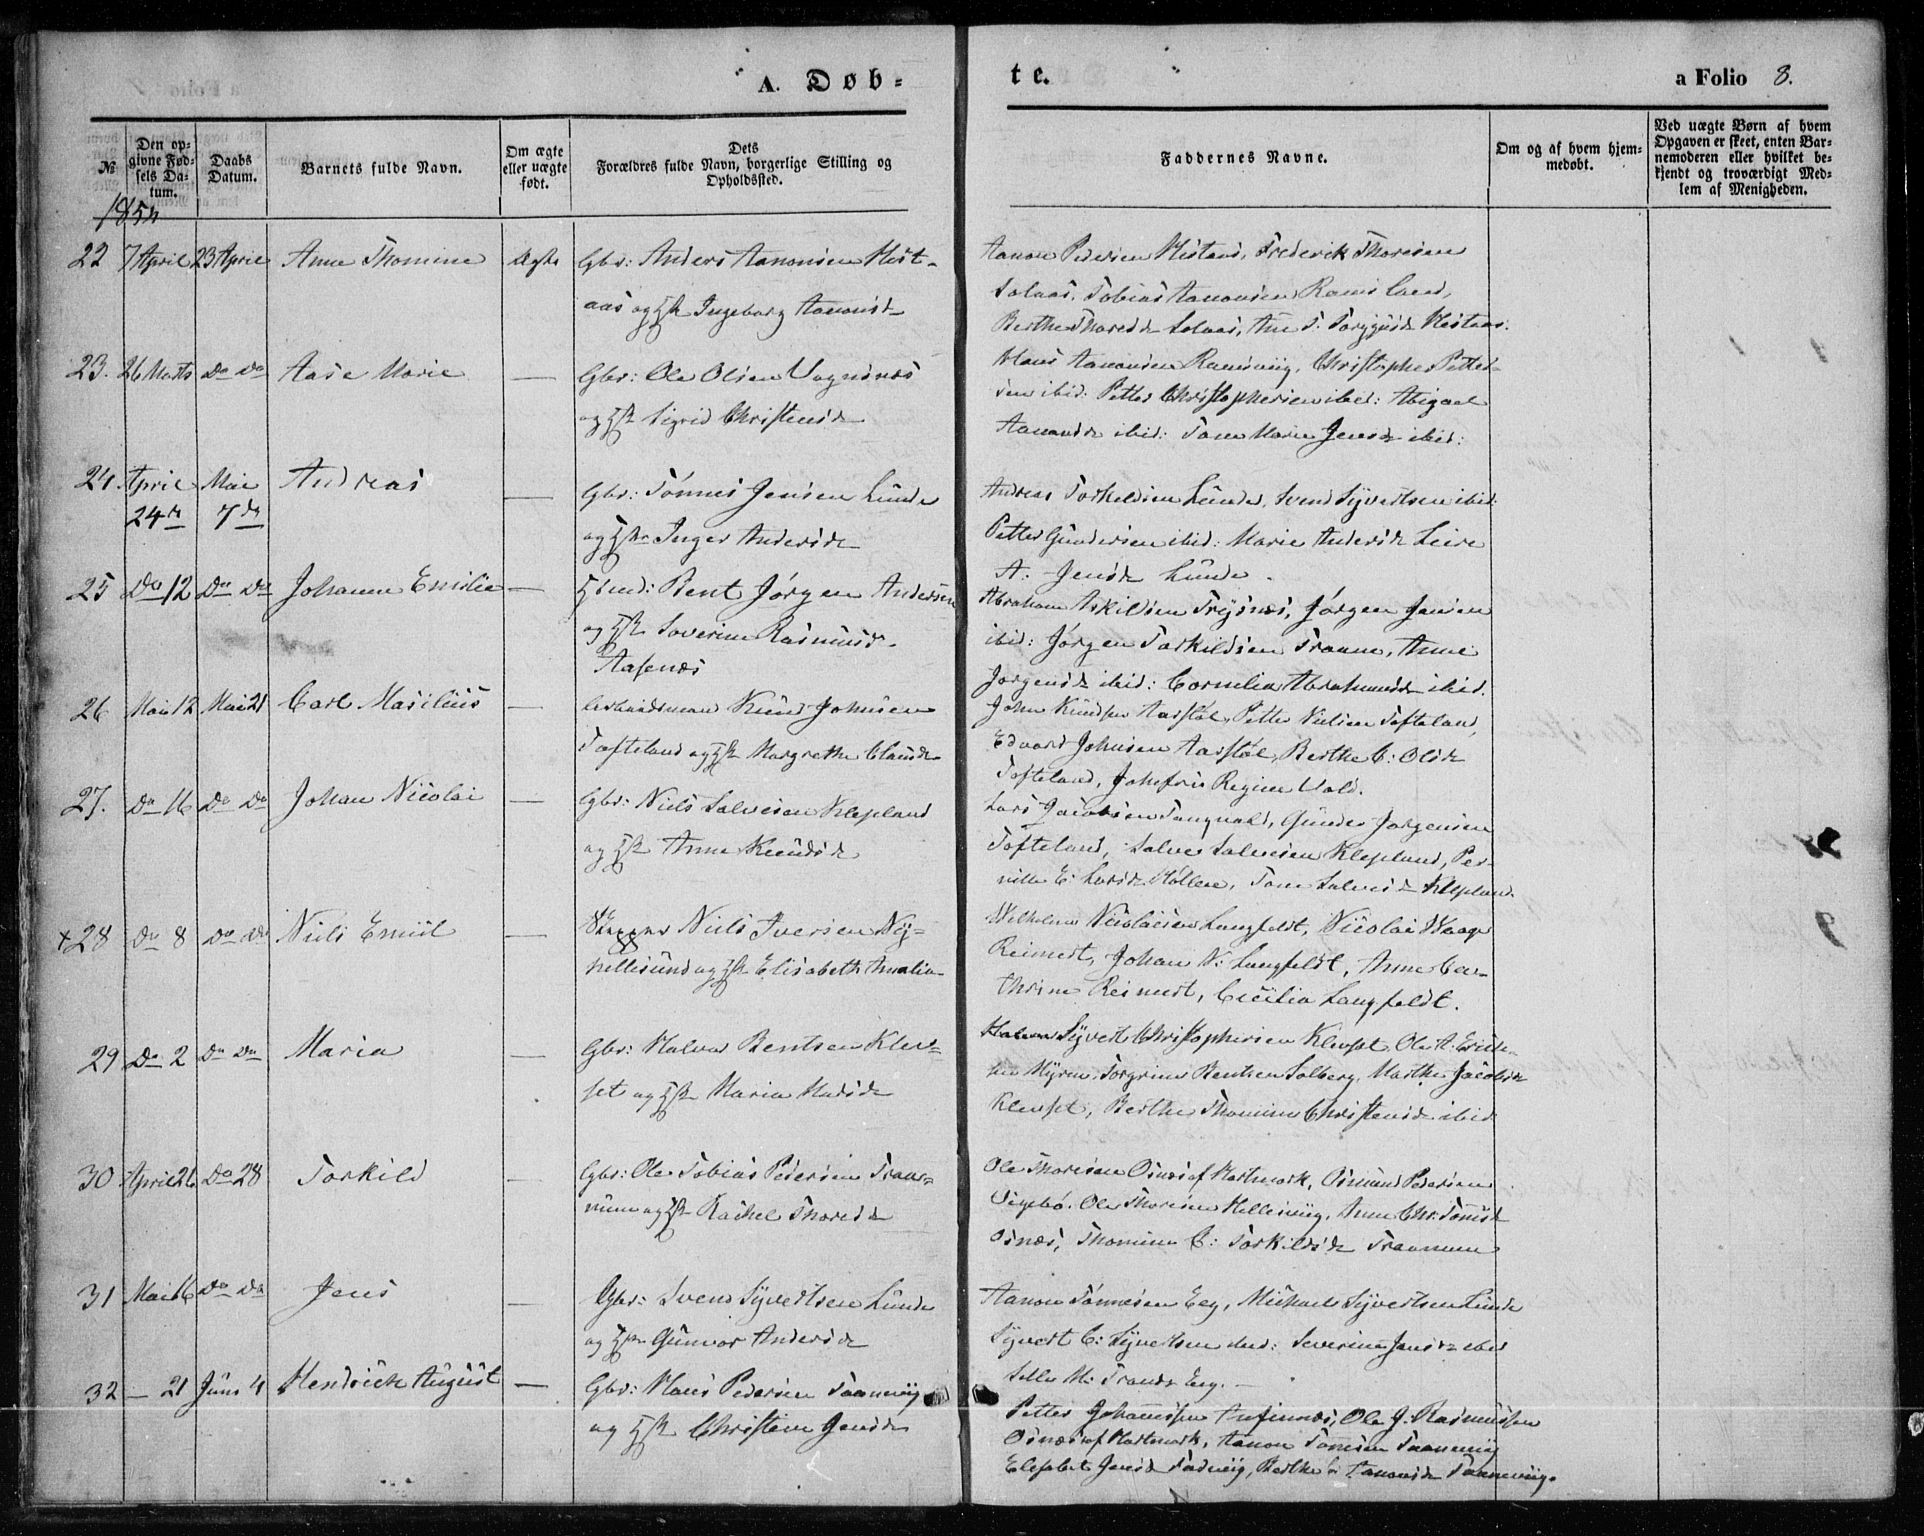 A. Døb-
te.
a Folio 8.
№
Den op-
givne Fød-
sels Da-
tum.
Daabs
Datum.
Barnets fulde Navn.
Om ægte
eller uægte
født.
Dets
Forældres fulde Navn, borgerlige Stilling og
Opholdssted.
Faddernes Navne.
Om og af hvem hjem-
medøbt.
Ved uægte Børn af hvem
Opgaven er skeet, enten Bar-
nemoderen eller hvilket be-
kjendt og troværdigt Med-
lem af Menigheden.
1854
22 7 April 23 April Anne Thomine Ægte Gbr: Anders Aanonsen Hest-
aas og Hst Ingeborg Aanonsd
Aanon Pedersen Hestaas, Frederik Thoresen
Solaas, Tobias Aanonsen Ramsland,
Berthe Thoresd Solaas, Ane T. Torgjusd Hestaas.
23. 26 Marts Do Do Aase Marie — Gbr: Ole Olsen Vognsnes
og Hst Sigrid Christensd
Hans Aanonsen Ramsviig, Christopher Petter-
sen ibid: Petter Christophersen ibid: Abigael
Aanonsd ibid: Tone Marie Jensd ibid:
24. April Mai Andreas — Gbr: Tønnes Jensen Lunde
24de 7de
og Hst Inger Andersd
Andreas Torkeldsen Lunde, Svend Syvertsen ibid:
Petter Gundersen ibid: Marie Andersd Leire
A: Jensd Lunde.
25 Do 12 Do Do Johanne Emilie — Hsmd: Bent Jørgen Andersen
og Hst Severine Rasmusd.
Aasenæs
Abraham Askildsen Trysnæs, Jørgen Jensen
ibid: Jørgen Torkildsen Traane, Anne
Jørgensd ibid: Cornelia Abrahamsd ibid.
26 Mai 12 Mai 21 Carl Masilius — Arbeidsmand Knud Johnsen
Tofteland og Hst Margrethe Clausd
John Knudsen Aarstøl, Petter Nielsen Tofteland,
Edvard Johnsen Aarstøl, Berthe C: Olsd
Tofteland, Josefine Regine Vold.
27. Do 16 Do Do Johan Nicolai — Gbr: Niels Salvesen Klepland
og Hst Anne Knudsd
Lars Jacobsen Tangvald, Gunder Jørgensen
Tofteland, Salve Salvesen Klepland, Per-
nille E: Larsd Høllen, Tone Salvesd Klepland
+28 Do 8 Do Do Niels Emiil — Niels Iversen Ny-
hellesund og Hst Elisabeth Amalia
Wilhelm Nicolaisen Langfeldt, Nicolai Waage
Reimert, Johan N: Langfeldt, Anne Ca-
thrine Reimert, Cecilia Langfeldt.
29 Do 2 Do Do Maria — Gbr: Halvor Bentsen Klev-
set og Hst Maria Madsd
Syvert Christophersen Klevset, Ole A: Erik-
sen Myren, Torgrim Bentsen Solberg, Marthe Jacobsd
Klevset, Berthe Thomine Christensd ibid
30 April 26 Do 28 Torkild — Gbr: Ole Tobias Pedersen Traan-
num og Hst Rachel Thoresd
Ole Thoresen Osnæs af Hartmark, Osmund Pedersen
Ole Thoresen Hellesviig, Anne Chr: Tønnesd
Osnæs, Thomine C: Torkildsd Traannum
31 Mai 16 Do Do Jens — Gbr: Svend Syvertsen Lunde
og Hst Gunvor Andersd
Aanon Tønnesen Eeg, Michael Syvertsen Lunde
Syvert C: Syvertsen ibid: Severine Jensd ibid
M: Trondsd Eeg.
32 — 21 Juni 4 Hendrick August — Gbr: Hans Pedersen Taaneviig
og Hst Christine Jensd
Petter Johannssen Anfinnæs, Ole J. Rasmussen
Osnæs af Hartmark, Aanon Tomsen Taaneviig
Elisabet Jensd, Berthe Aanonsd Taaneviig.